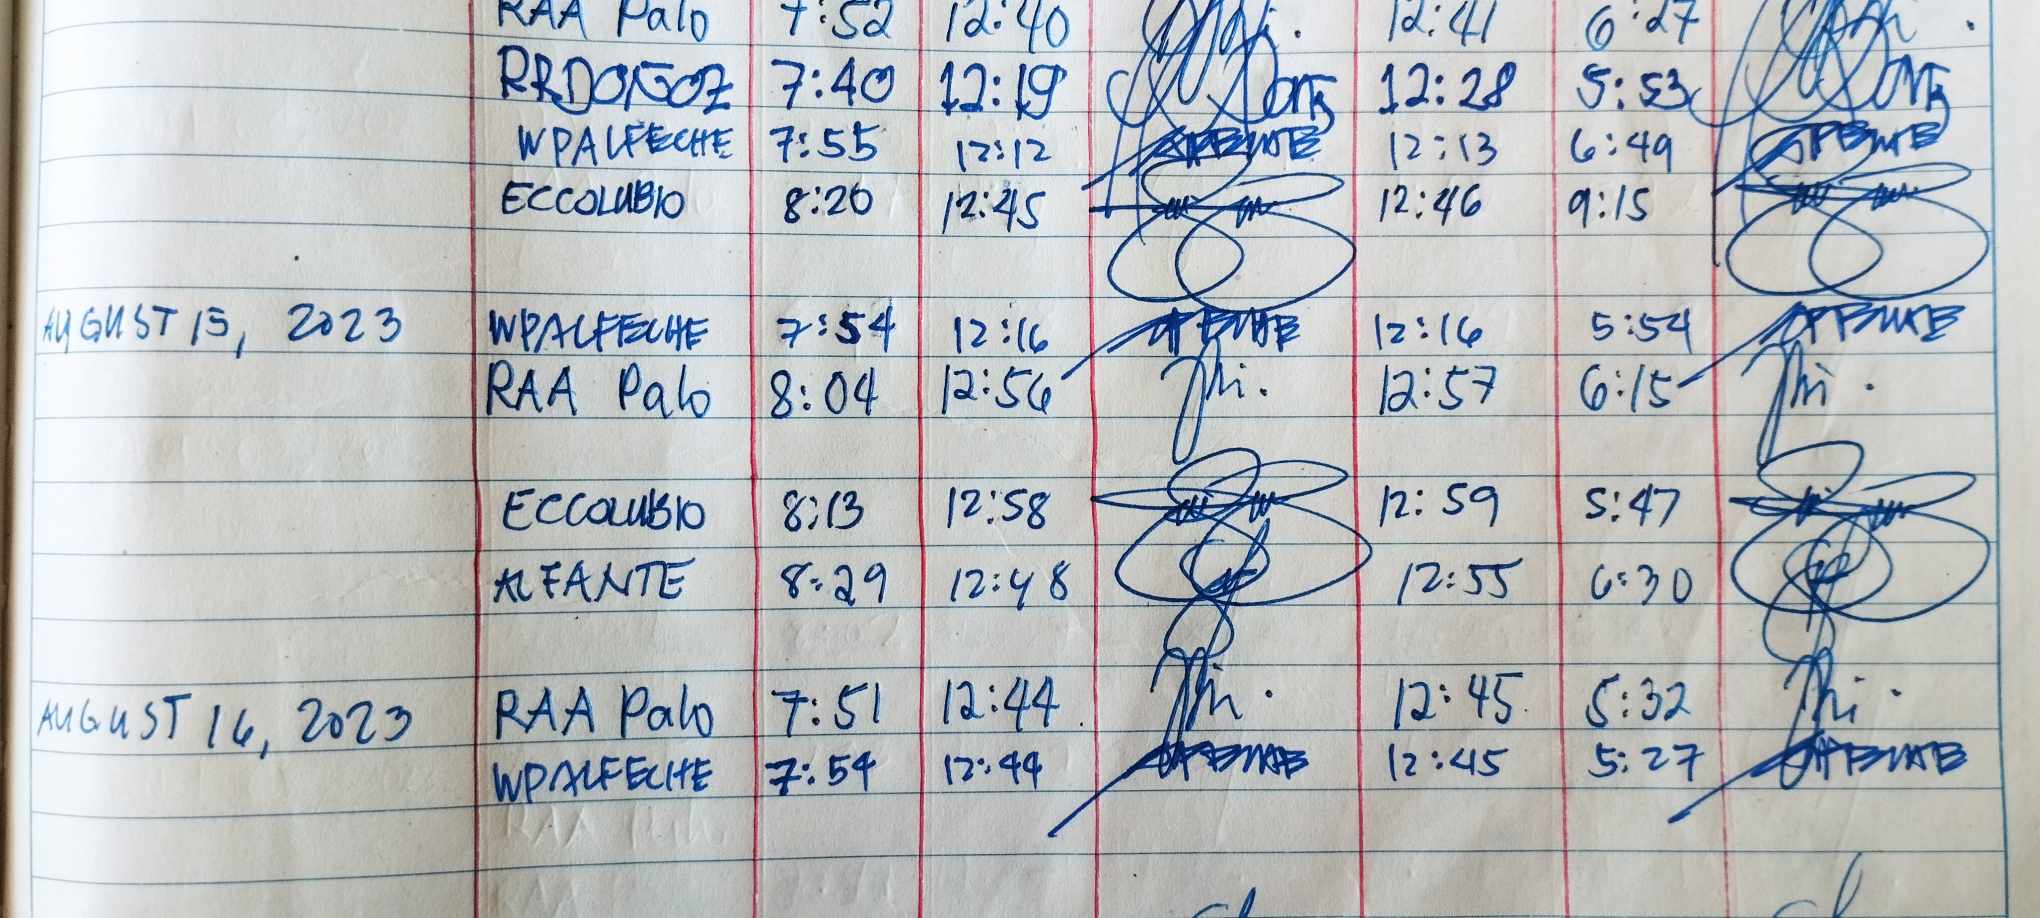 RAA Palo 7:52 12:40 12:41 6:27
RRDONGOZ 7:40 12:19 12:28 5:53
WPALFECHE 7:55 12:12 12:13 6:49
ECCOLUBIO 8:20 12:45 12:46 9:15
AUGUST 15, 2023 WPALFECHE 7:54 12:16 12:16 5:54
RAA Palo 8:04 12:56 12:57 6:15
ECCOLUBIO 8:13 12:58 12:59 5:47
ALFANTE 8:29 12:48 12:55 6:30
AUGUST 16, 2023 RAA Palo 7:51 12:44 12:45 5:32
WPALFECHE 7:54 12:44 12:45 5:27